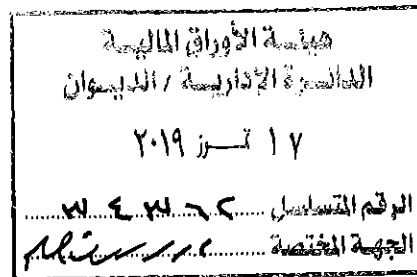 هيئة الأوراق المالية
الدائرة الإدارية / الديوان
١٧ تموز ٢٠١٩
الرقم المتسلسل ٣٤٣٦٢
الجهة المختصة